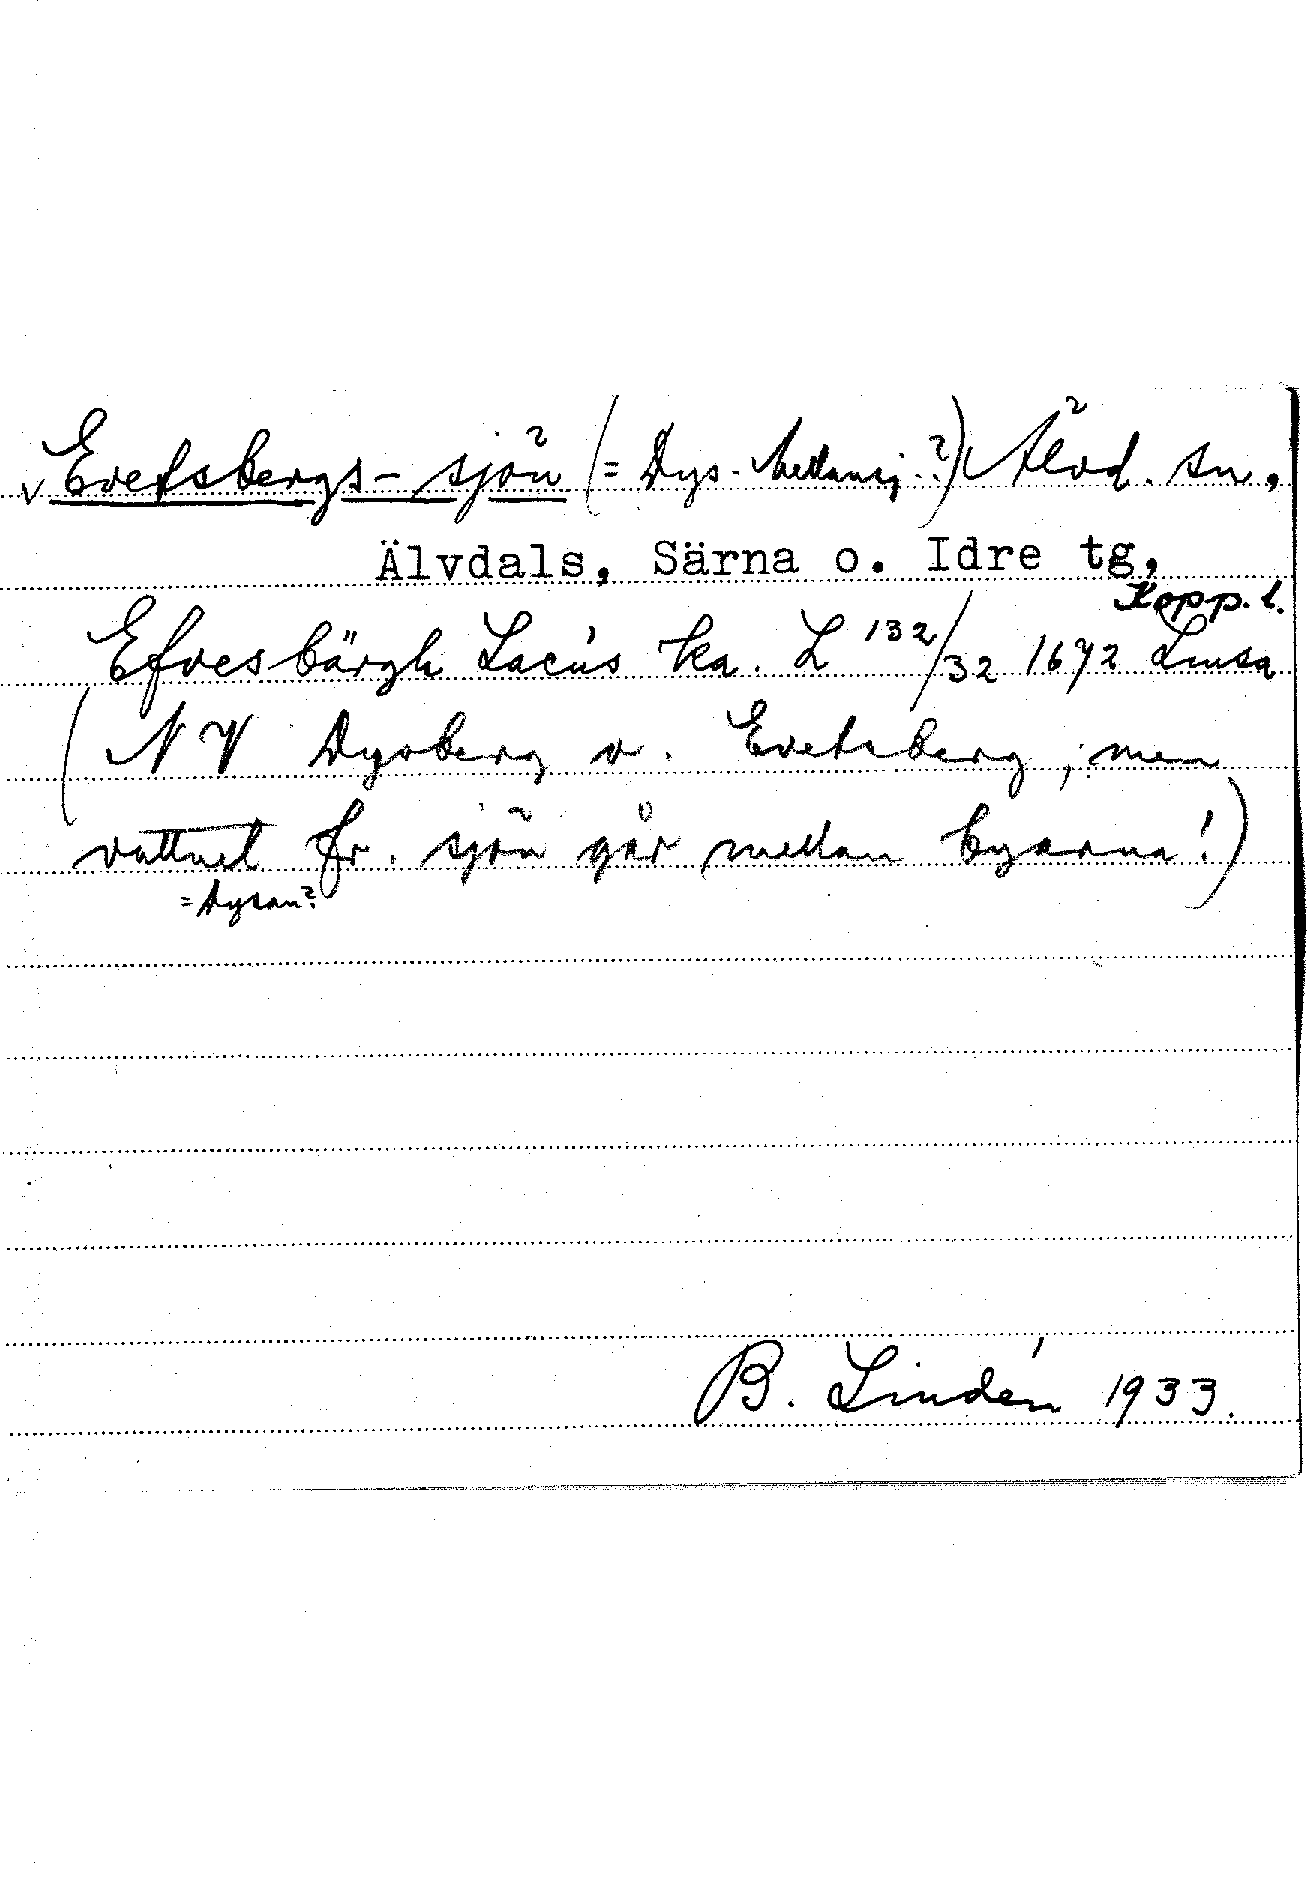 v Evetsbergs-sjön (= Dys-Mellansj.?) Älvd. sn,
Älvdals, Särna o. Idre tg,
Kopp. l.
Efvesbärgh Lacus ka. L 132/32 1672 Limsa
(NV Dysberg o. Evetsberg; men
vattnet fr. sjön går mellan byarna!)
= Dysån?
B. Lindén 1933.